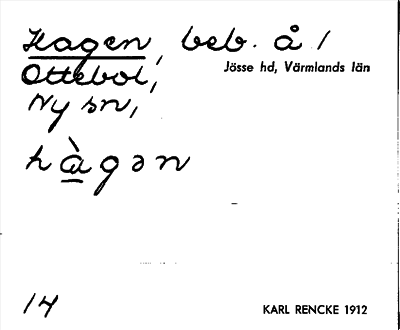 Hagen, beb. å /
Ottebol,
Jösse hd, Värmlands län
Ny sn,
hàgən
14
KARL RENCKE 1912